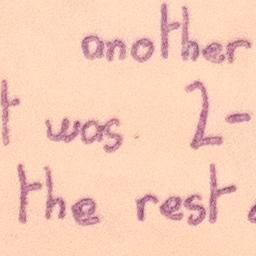 another
t was 2-
the rest